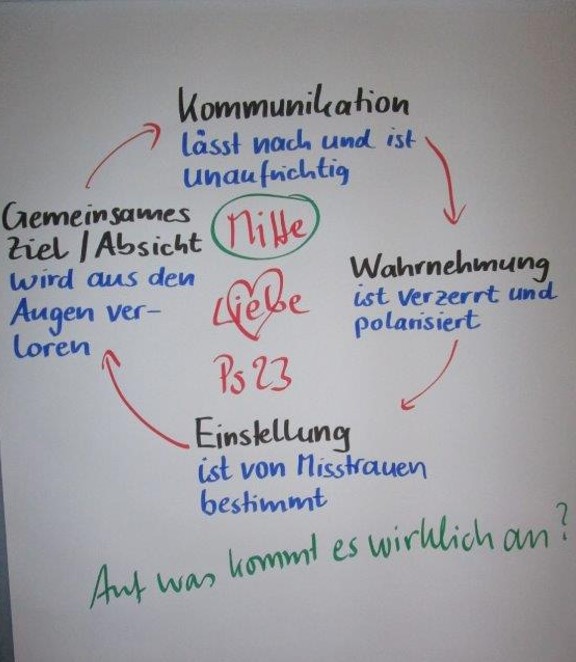 Kommunikation
lässt nach und ist
unaufrichtig
Gemeinsames
Ziel / Absicht
wird aus den
Augen ver-
loren
Mitte
Liebe
Ps 23
Wahrnehmung
ist verzerrt und
polarisiert
Einstellung
ist von Misstrauen
bestimmt
Auf was kommt es wirklich an?